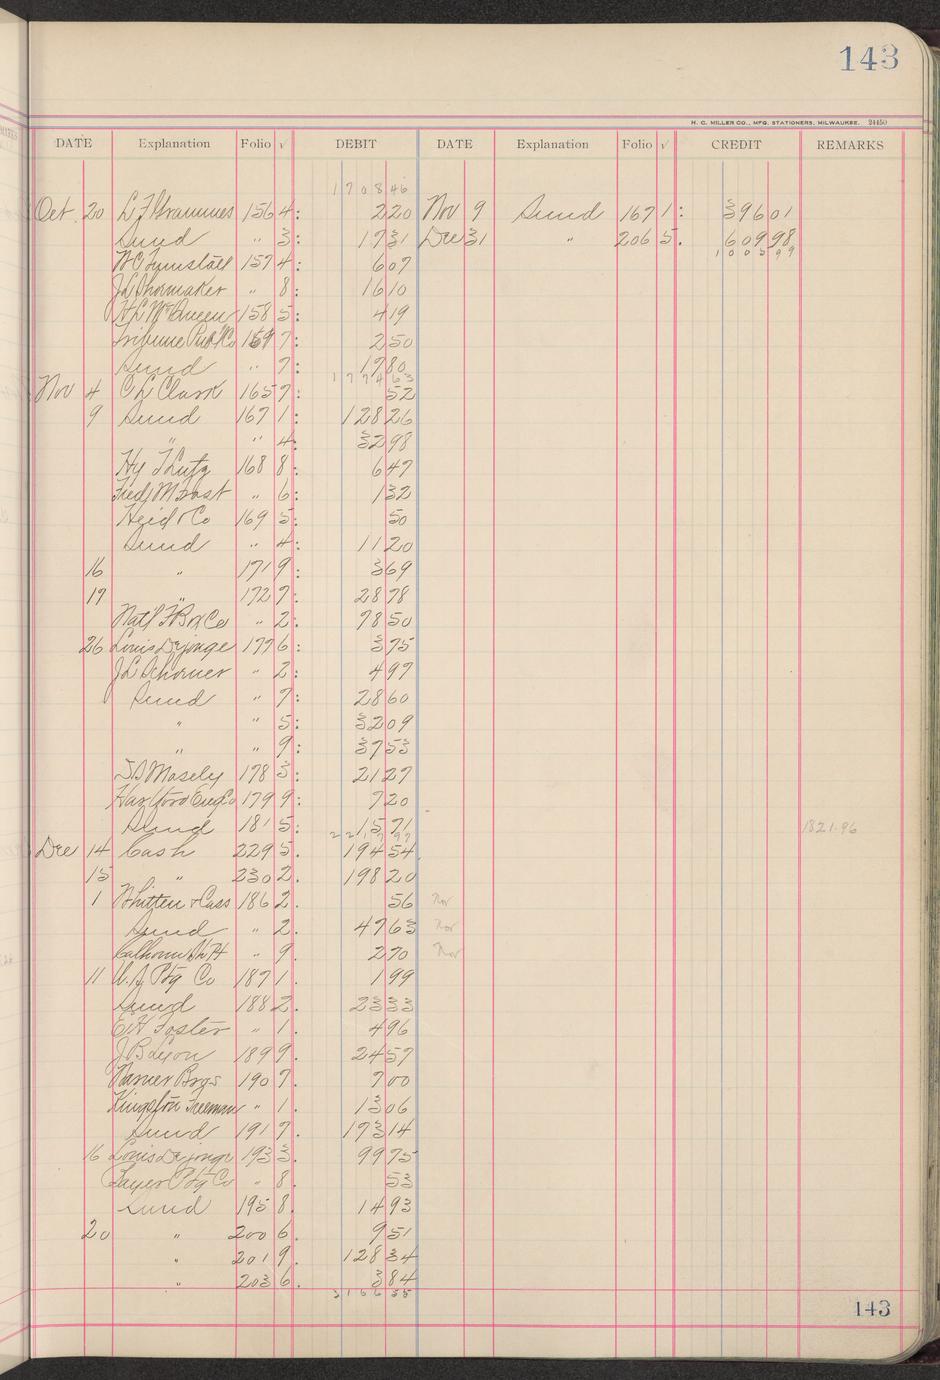 143
H. C. MILLER CO., MFG. STATIONERS, MILWAUKEE. 24450
DATE Explanation Folio √ DEBIT DATE Explanation Folio √ CREDIT REMARKS
170846
Oct 20 L F Grammes 156 4: 220 Nov 9 Sund 167 1: 39601
Sund " 3: 1731 Dec 31 " 206 5. 60998
W C Tunstall 157 4: 607 100599
J L Shoemaker " 8: 1610
H L McQueen 158 5: 419
Tribune Pub Co 159 7: 250
Sund " 7: 1780
177463
Nov 4 C L Clark 165 7: 52
9 Sund 167 1: 12826
" " 4: 3298
Hy T Lutz 168 8: 647
Fred M Frost " 6: 132
Heid & Co 169 5: 50
Sund " 4: 1120
16 " 171 9: 369
17 " 172 7: 2878
Nat'l F Box Co " 2: 7850
26 Louis Dejonge 177 6: 375
J L " 2: 497
Sund " 7: 2860
" " 5: 3209
" " 9: 3753
Mosely 178 3: 2127
Hartford Eng Co 179 9: 720
Sund 181 5: 1571
1821.96
Dec 14 Cash 229 5. 19454
15 " 230 2. 19820
1 Whitten & Cass 186 2. 56 Nov
Sund " 2. 4763 Nov
Calhoun " 9. 270 Nov
11 U.S Ptg Co 187 1. 199
Sund 188 2. 2333
E H Foster " 1. 496
189 9. 2457
Warner Bros 190 7. 700
Kingston Freeman " 1. 1306
Sund 191 7. 17314
16 Louis Dejonge 193 3. 9975
Ptg Co " 8. 53
Sund 195 8. 1493
20 " 200 6. 951
" 201 9. 12834
" 203 6. 384
316655
143